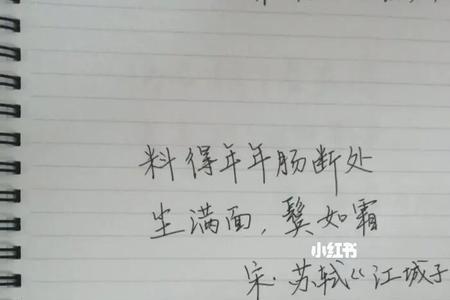 料得年年肠断处
尘满面，鬓如霜
小红书
宋·苏轼《江城子